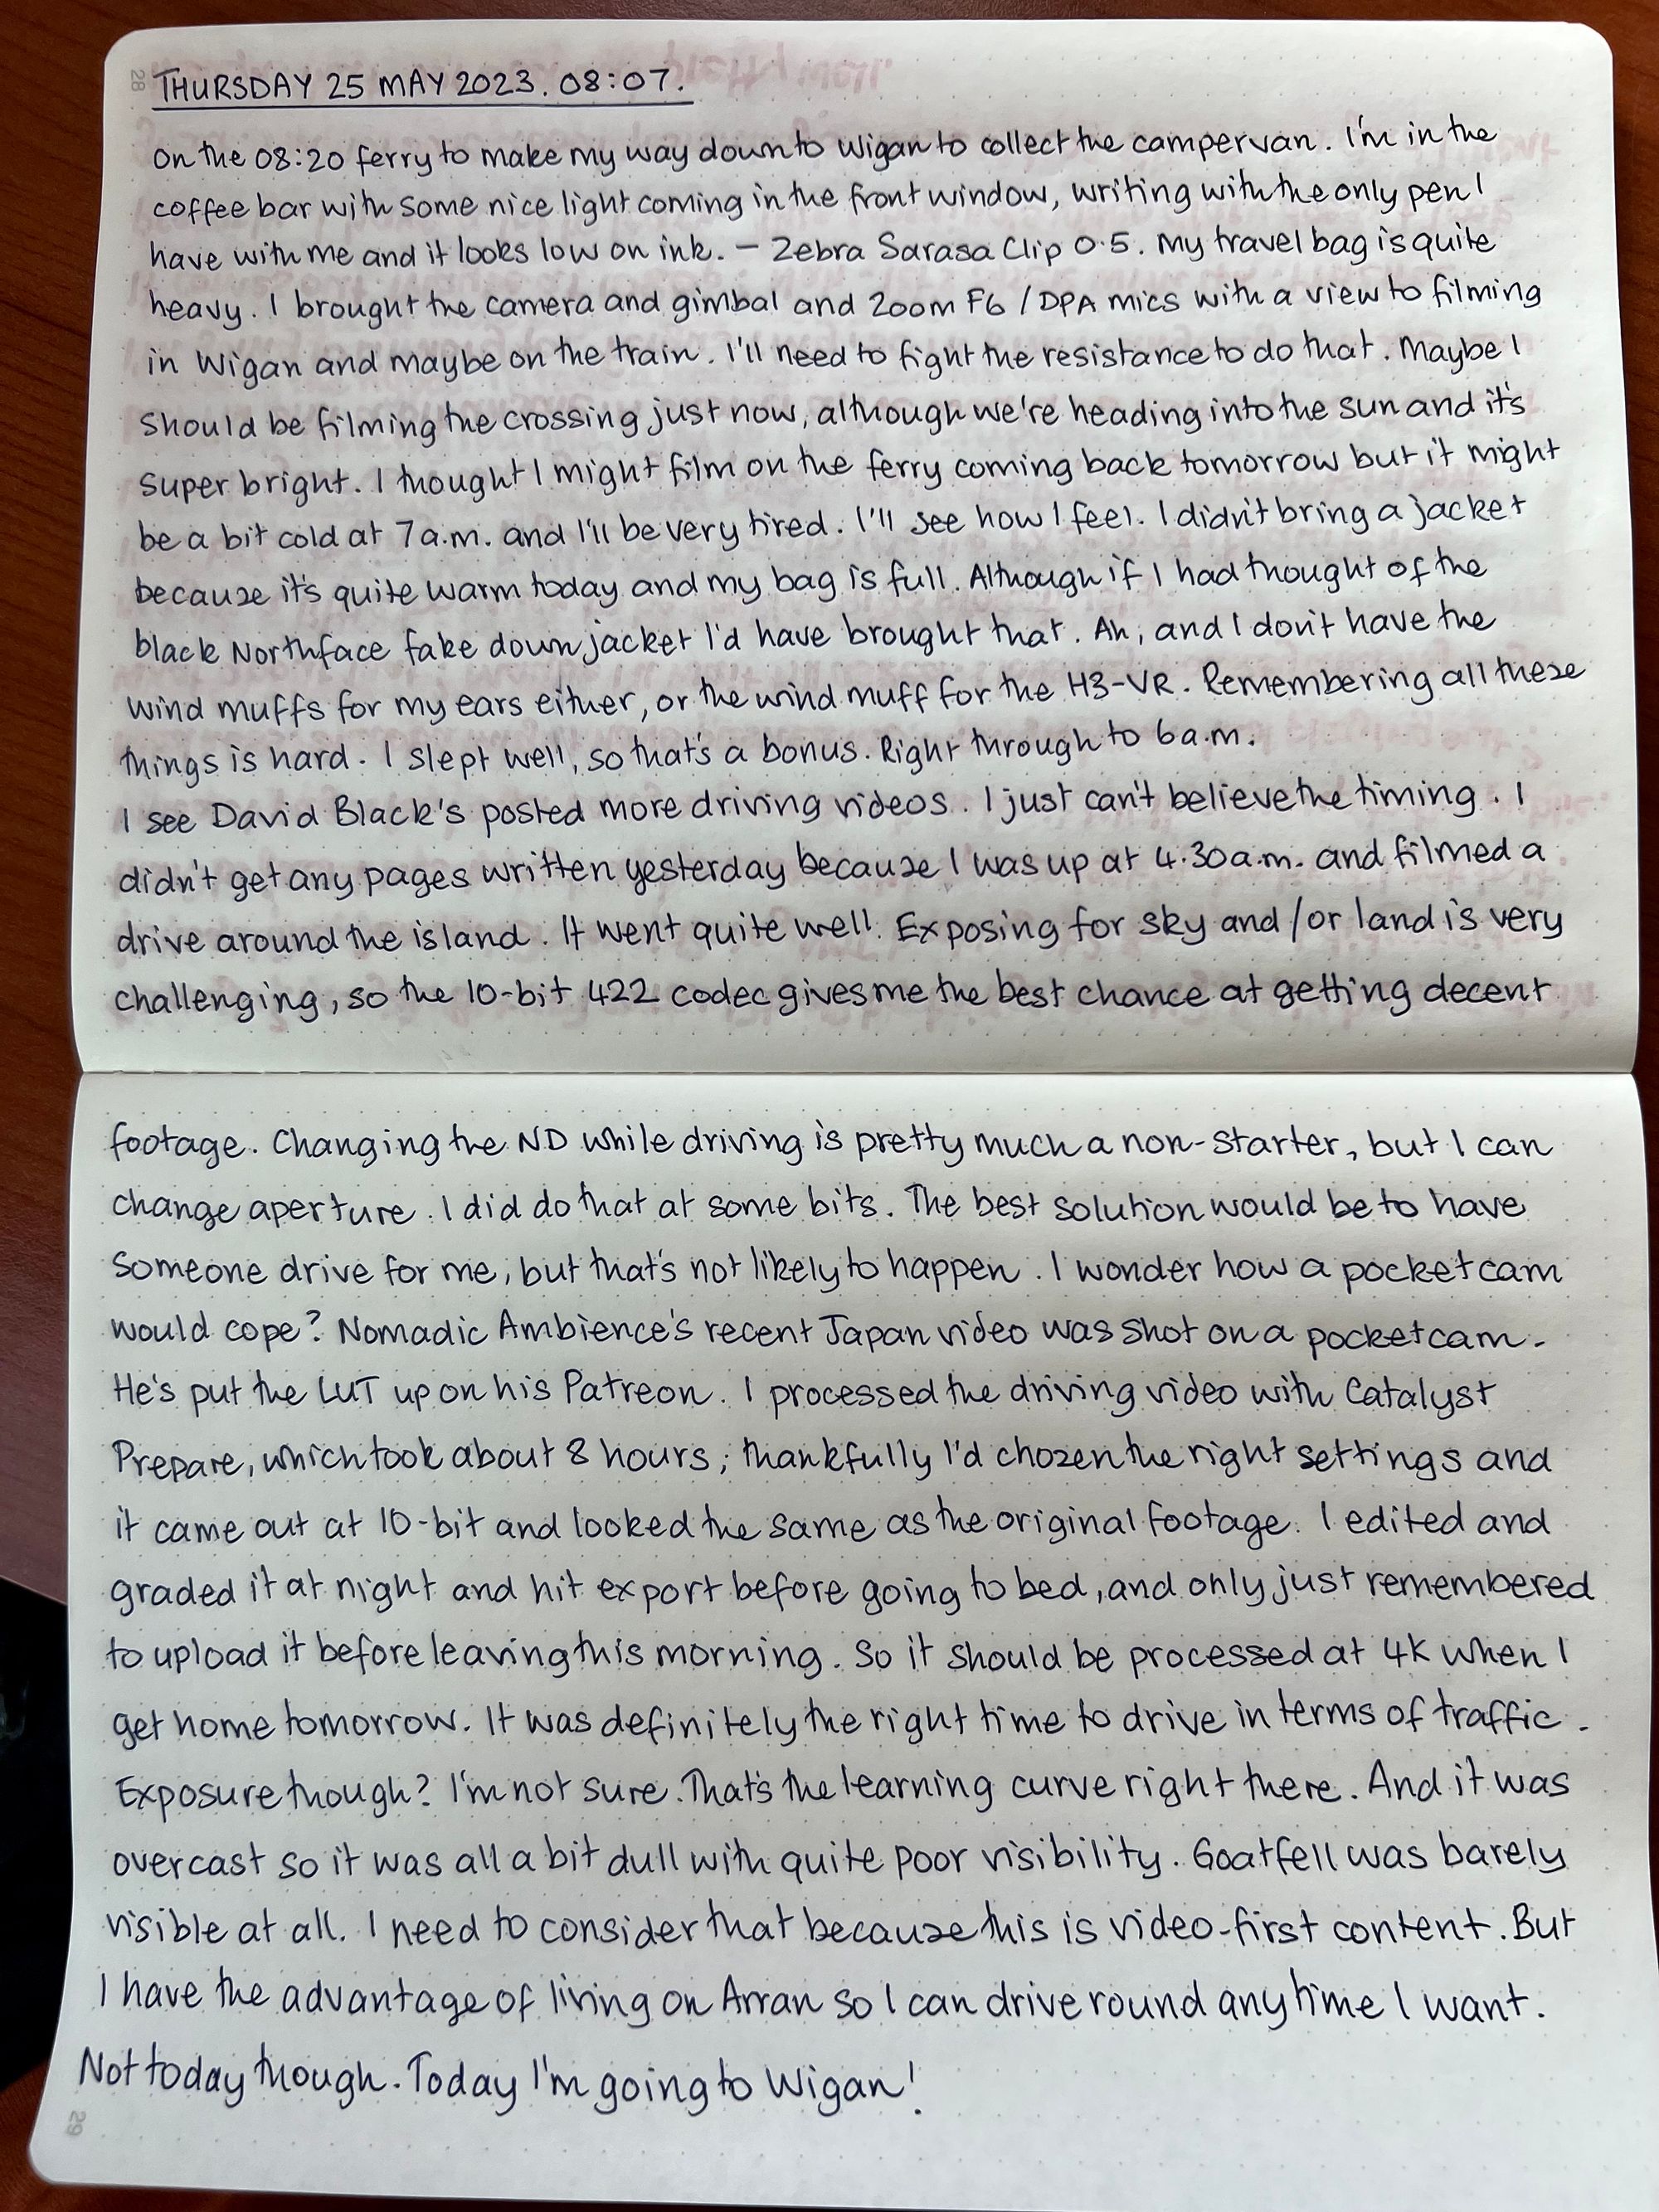 28
THURSDAY 25 MAY 2023. 08:07.
On the 08:20 ferry to make my way down to Wigan to collect the campervan. I'm in the
coffee bar with some nice light coming in the front window, writing with the only pen I
have with me and it looks low on ink. – Zebra Sarasa Clip 0.5. My travel bag is quite
heavy. I brought the camera and gimbal and Zoom F6 / DPA mics with a view to filming
in Wigan and maybe on the train. I'll need to fight the resistance to do that. Maybe I
should be filming the crossing just now, although we're heading into the sun and it's
super bright. I thought I might film on the ferry coming back tomorrow but it might
be a bit cold at 7a.m. and I'll be very tired. I'll see how I feel. I didn't bring a jacket
because it's quite warm today and my bag is full. Although if I had thought of the
black Northface fake down jacket I'd have brought that. Ah, and I don't have the
wind muffs for my ears either, or the wind muff for the H3-VR. Remembering all these
things is hard. I slept well, so that's a bonus. Right through to 6a.m.
I see David Black's posted more driving videos. I just can't believe the timing. I
didn't get any pages written yesterday because I was up at 4.30a.m. and filmed a
drive around the island. It went quite well. Exposing for sky and /or land is very
challenging, so the 10-bit 422 codec gives me the best chance at getting decent
footage. Changing the ND while driving is pretty much a non-starter, but I can
change aperture. I did do that at some bits. The best solution would be to have
someone drive for me, but that's not likely to happen. I wonder how a pocket cam
would cope? Nomadic Ambience's recent Japan video was shot on a pocket cam.
He's put the LUT up on his Patreon. I processed the driving video with Catalyst
Prepare, which took about 8 hours; thankfully I'd chosen the right settings and
it came out at 10-bit and looked the same as the original footage. I edited and
graded it at night and hit export before going to bed, and only just remembered
to upload it before leaving this morning. So it should be processed at 4K when I
get home tomorrow. It was definitely the right time to drive in terms of traffic.
Exposure though? I'm not sure. That's the learning curve right there. And it was
overcast so it was all a bit dull with quite poor visibility. Goatfell was barely
visible at all. I need to consider that because this is video-first content. But
I have the advantage of living on Arran so I can drive round any time I want.
Not today though. Today I'm going to Wigan!
29